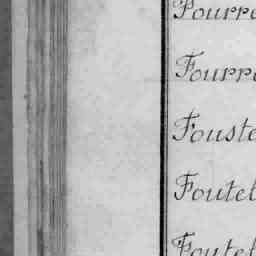 Fourre
Fourre
Fouste
Foutel
Foutel